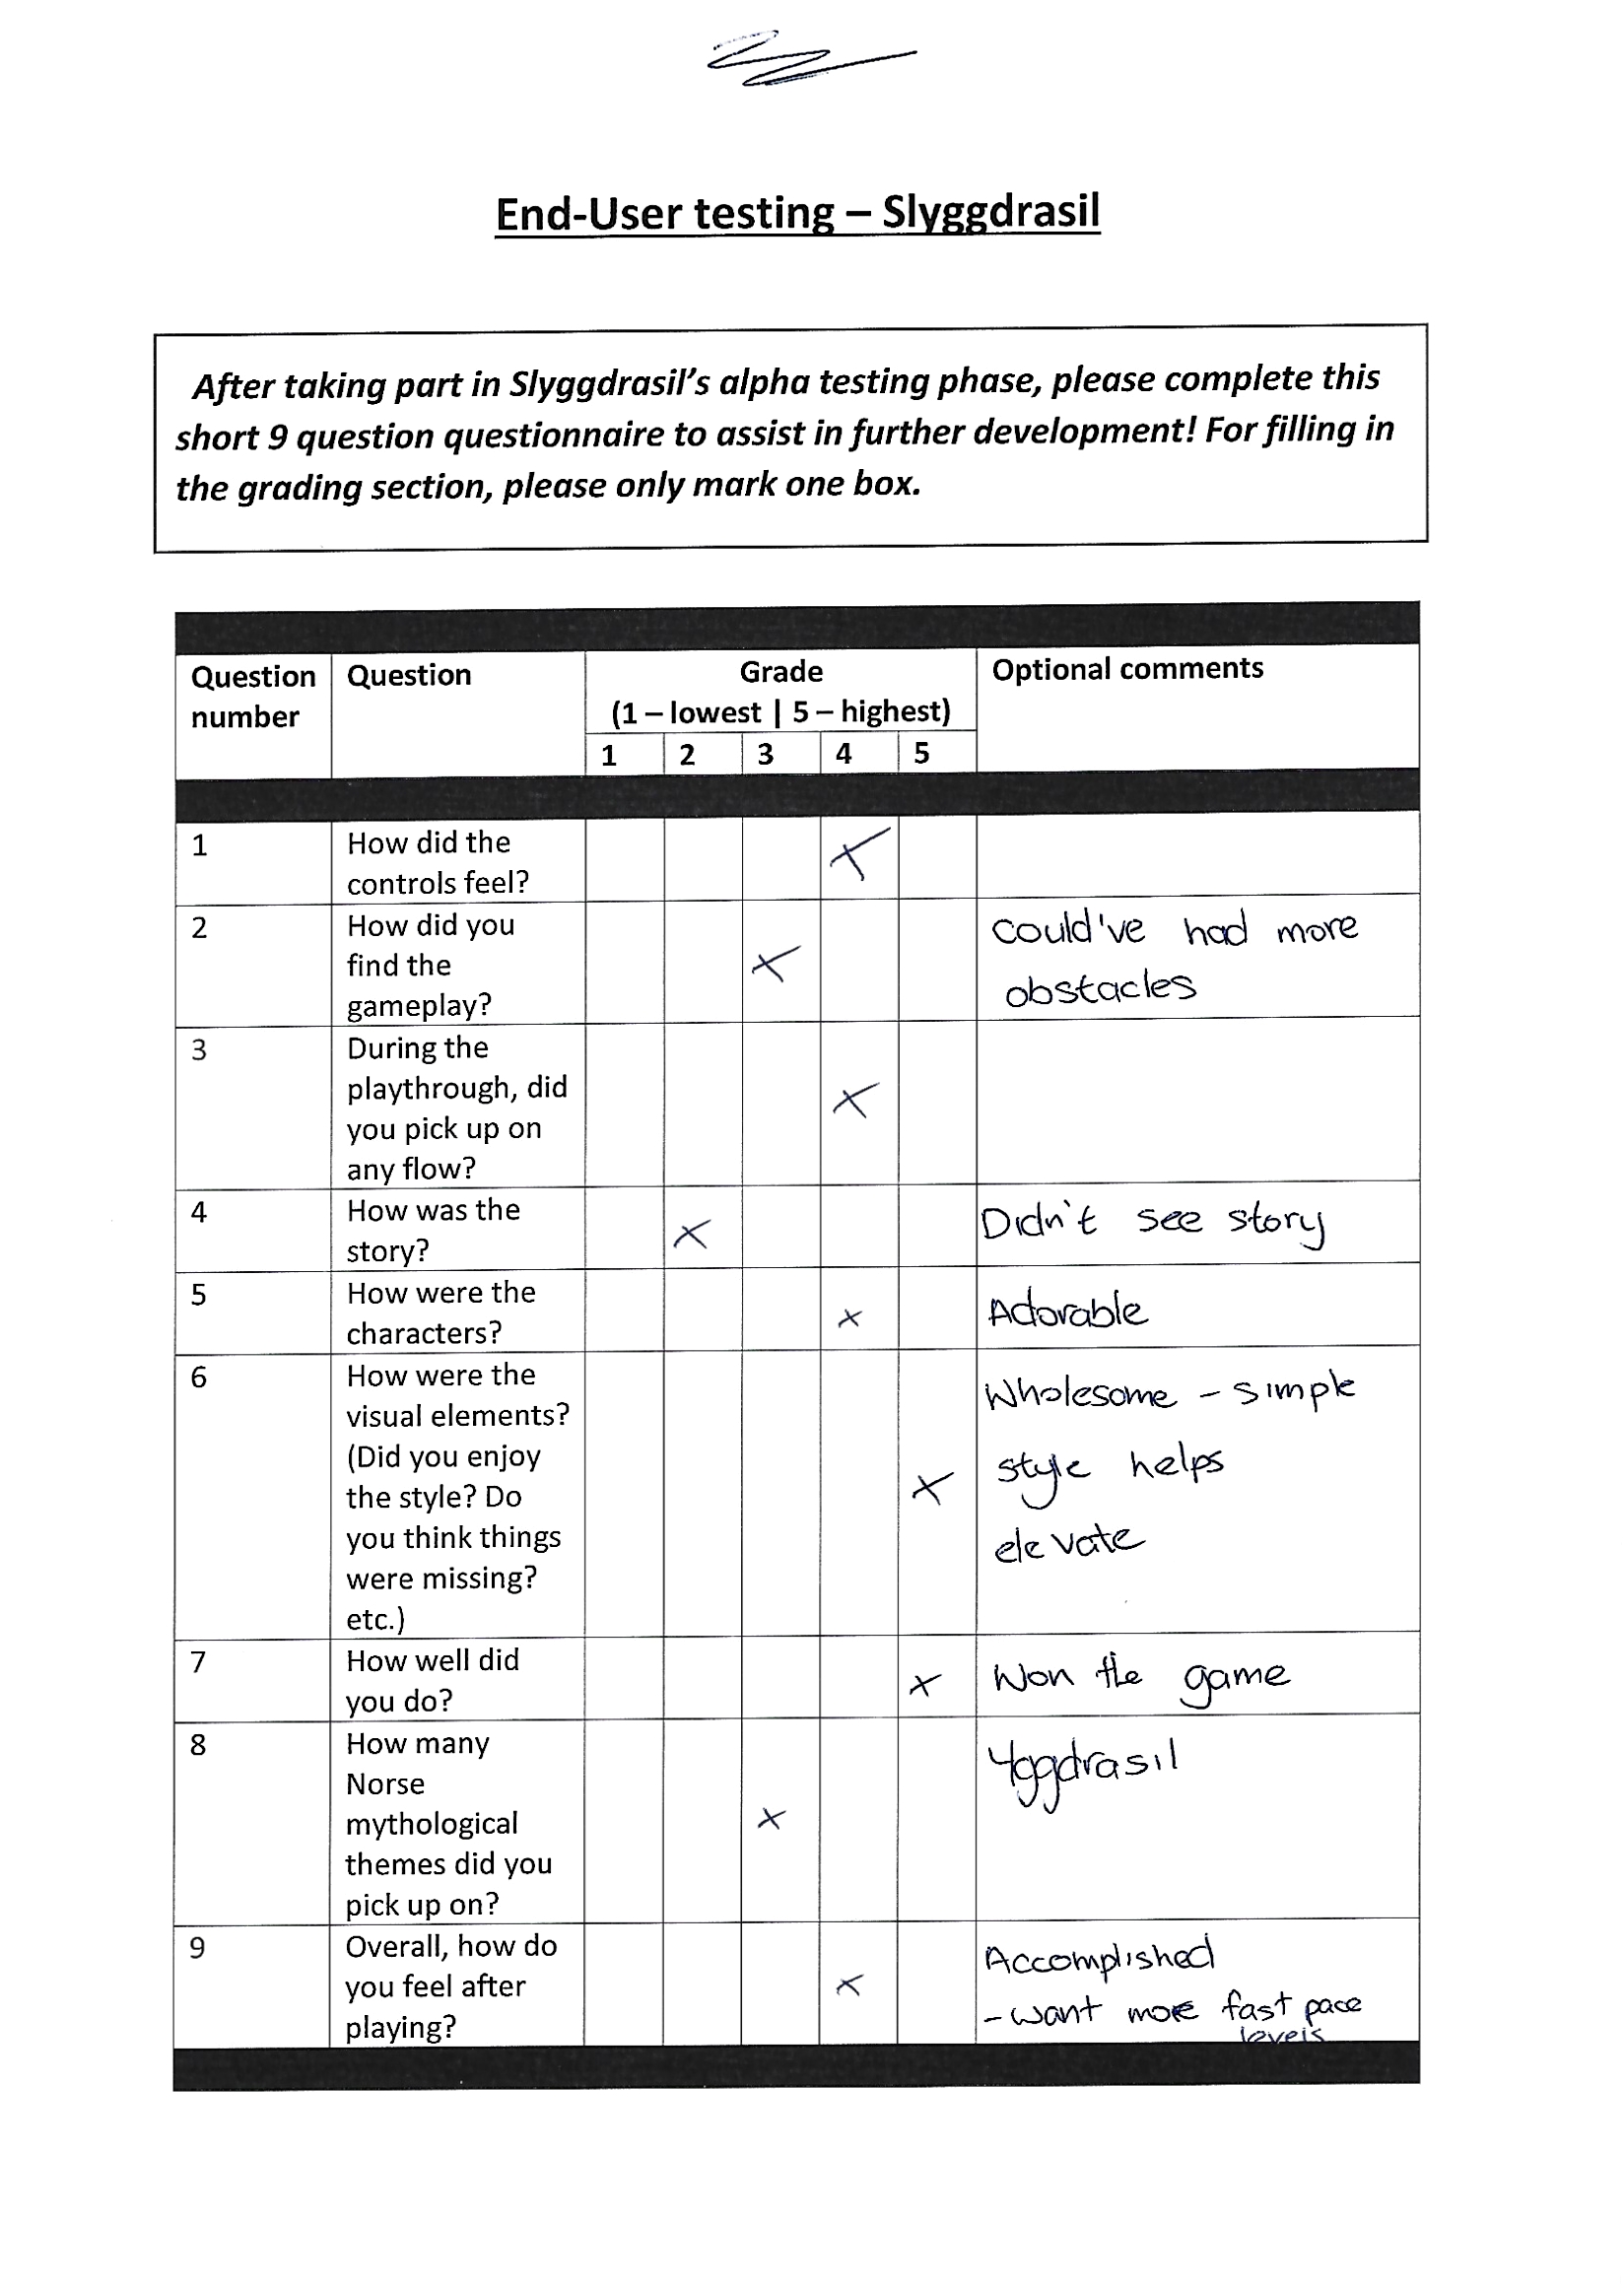 End-User testing – Slyggdrasil
After taking part in Slyggdrasil's alpha testing phase, please complete this
short 9 question questionnaire to assist in further development! For filling in
the grading section, please only mark one box.
Question number
Question
Grade
(1 – lowest | 5 – highest)
1 2 3 4 5
Optional comments
1
How did the
controls feel?
2
How did you
find the
gameplay?
Could've had more
obstacles
3
During the
playthrough, did
you pick up on
any flow?
4
How was the
story?
Didn't see story
5
How were the
characters?
Adorable
6
How were the
visual elements?
(Did you enjoy
the style? Do
you think things
were missing?
etc.)
Wholesome - simple
style helps
elevate
7
How well did
you do?
Won the game
8
How many
Norse
mythological
themes did you
pick up on?
Yggdrasil
9
Overall, how do
you feel after
playing?
Accomplished
- want more fast pace
levels